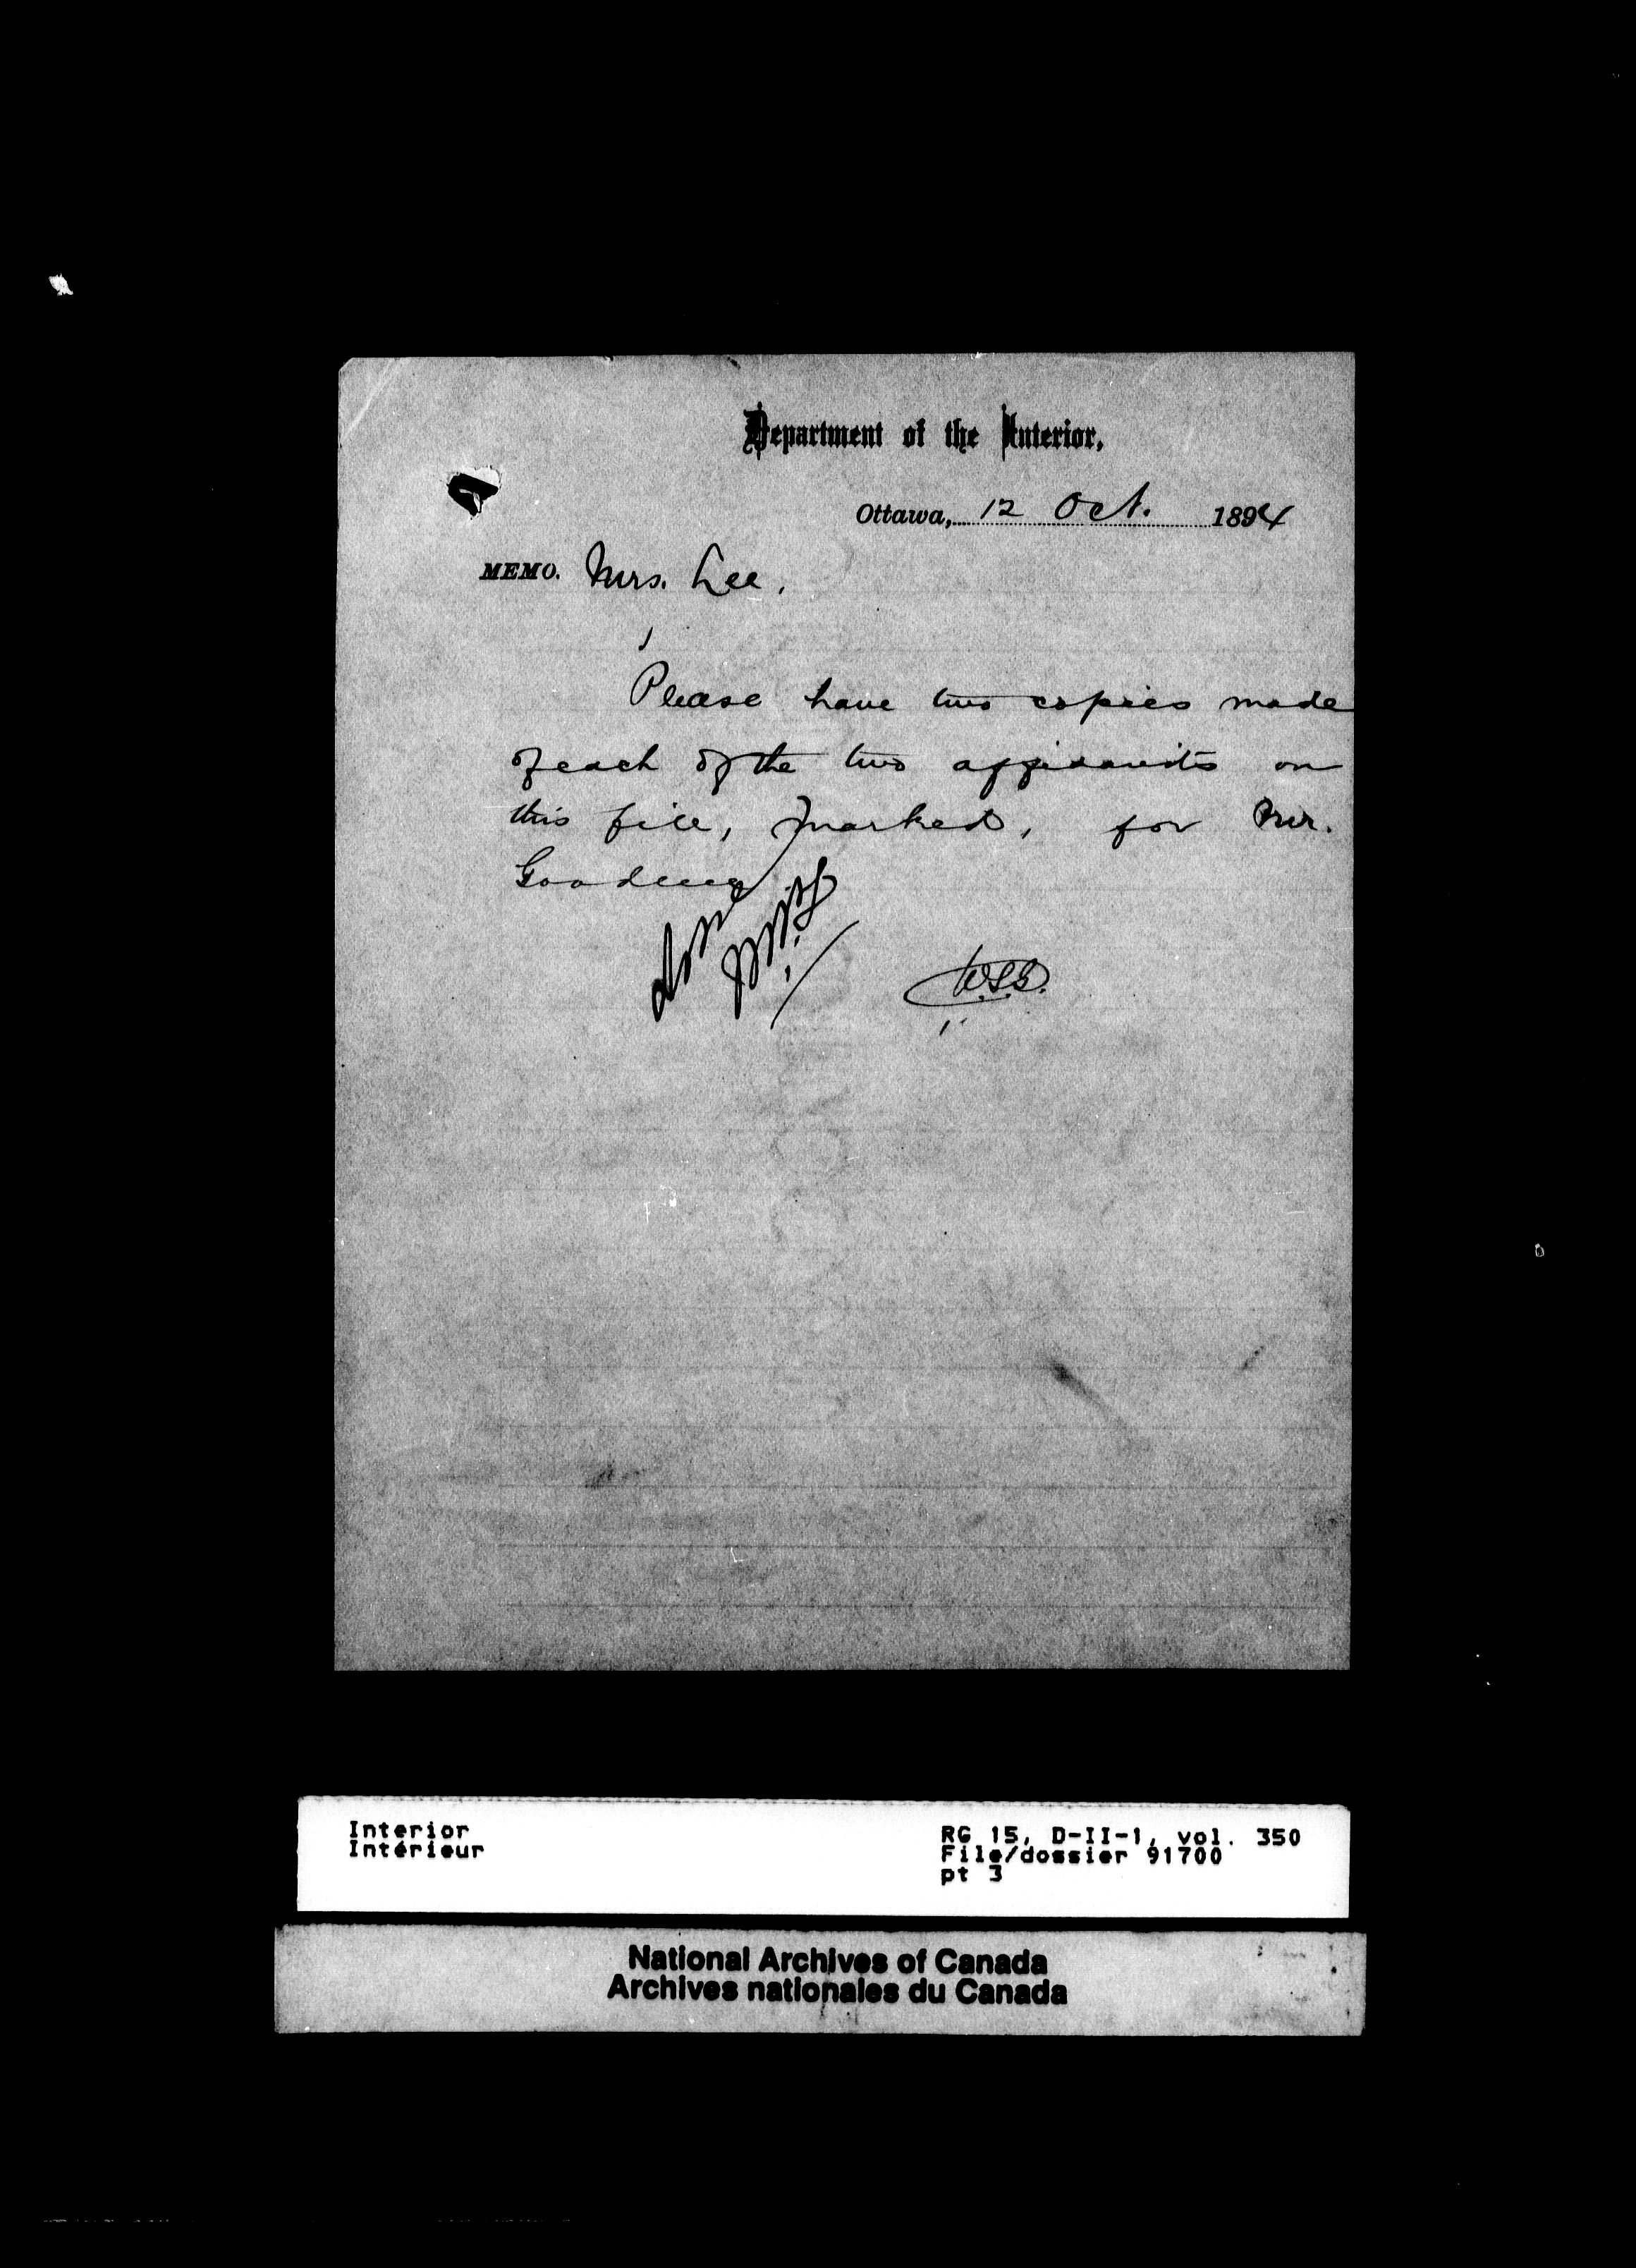 Department of the Interior,
Ottawa, 12 Oct. 1894
MEMO. Mrs. Lee,
Please have two copies made
of each of the two affidavits on
this file, marked, for Mr.
Gooding
Done
W.S.G.
Interior
Intérieur
RG 15, D-II-1, vol. 350
File/dossier 91700
pt 3
National Archives of Canada
Archives nationales du Canada